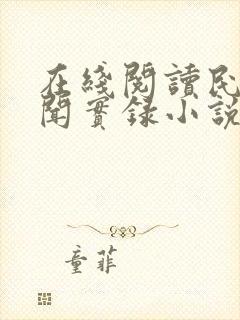 在綫閱讀民
聞實録小説
童菲